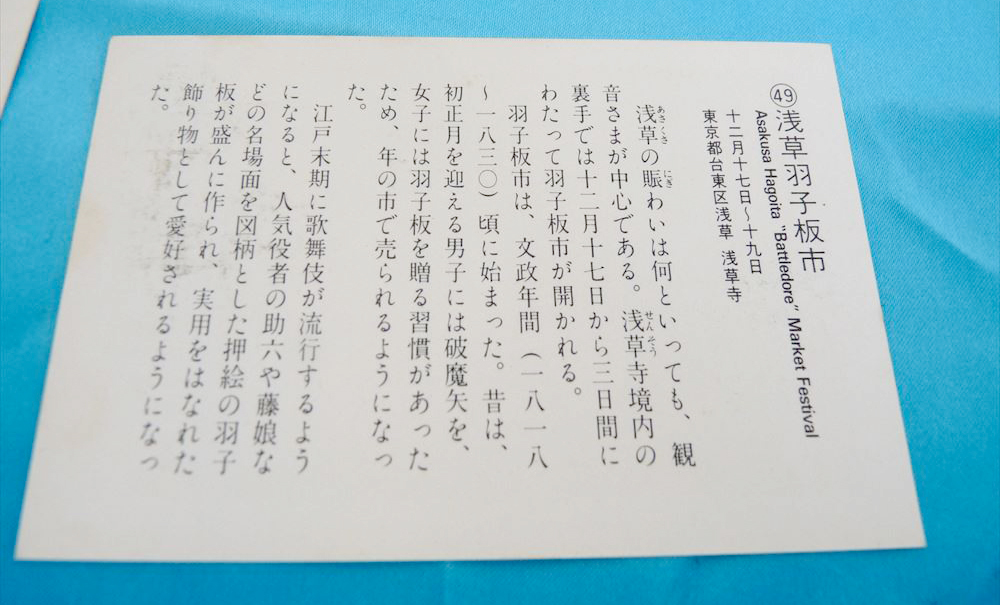 ㊾浅草羽子板市
Asakusa Hagoita "Battledore" Market Festival
十二月十七日〜十九日
東京都台東区浅草 浅草寺
浅草の賑わいは何といっても、観
あさくさ にぎ
音さまが中心である。浅草寺境内の
せんそう
裏手では十二月十七日から三日間に
わたって羽子板市が開かれる。
羽子板市は、文政年間(一八一八
〜一八三〇)頃に始まった。昔は、
初正月を迎える男子には破魔矢を、
女子には羽子板を贈る習慣があった
ため、年の市で売られるようになっ
た。
江戸末期に歌舞伎が流行するよう
になると、人気役者の助六や藤娘な
どの名場面を図柄とした押絵の羽子
板が盛んに作られ、実用をはなれた
飾り物として愛好されるようになっ
た。